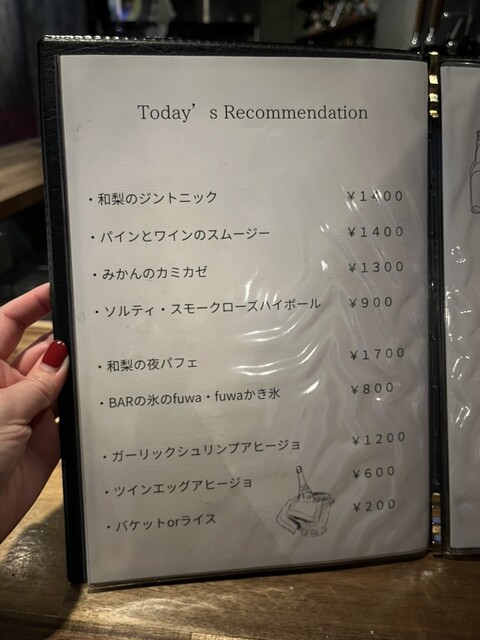 Today's Recommendation
・和梨のジントニック ￥1400
・パインとワインのスムージー ￥1400
・みかんのカミカゼ ￥1300
・ソルティ・スモークローズハイボール ￥900
・和梨の夜パフェ ￥1700
・BARの氷のfuwa・fuwaかき氷 ￥800
・ガーリックシュリンプアヒージョ ￥1200
・ツインエッグアヒージョ ￥600
・バケットorライス ￥200